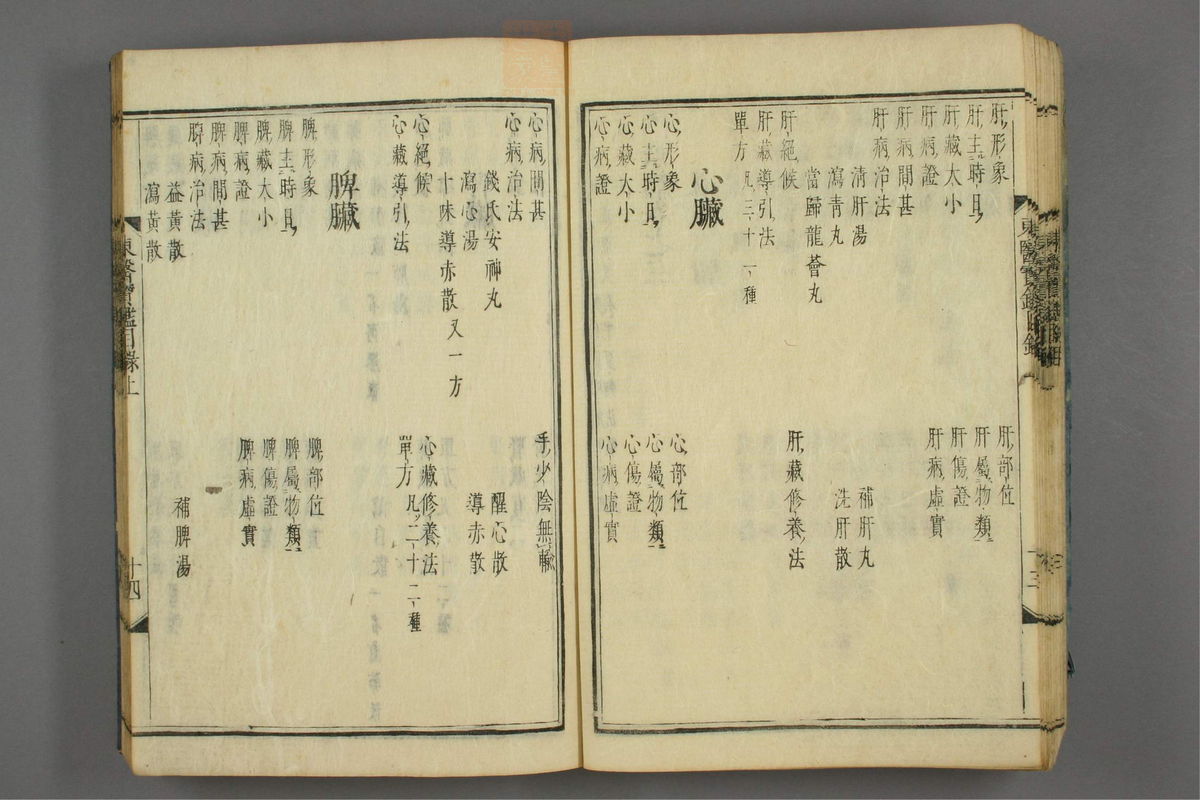 肝形象
肝部位
肝主時日
肝屬物類
肝藏大小
肝傷證
肝病證
肝病虛實
肝病間甚
肝病治法
淸肝湯
補肝丸
瀉靑丸
洗肝散
當歸龍薈丸
肝絕候
肝藏修養法
肝藏導引法
單方凡三十一種
心臟
心形象
心部位
心主時日
心屬物類
心藏大小
心傷證
心病證
心病虛實
東醫寶鑑目錄
十三
心病間甚
手少陰無輸
心病治法
錢氏安神丸
醒心散
瀉心湯
導赤散
十味導赤散又一方
心絕候
心藏修養法
心藏導引法
單方凡二十二種
脾臟
脾形象
脾部位
脾主時日
脾屬物類
脾藏大小
脾傷證
脾病證
脾病虛實
脾病間甚
脾病治法
益黃散
補脾湯
瀉黃散
東醫寶鑑目錄上
十四